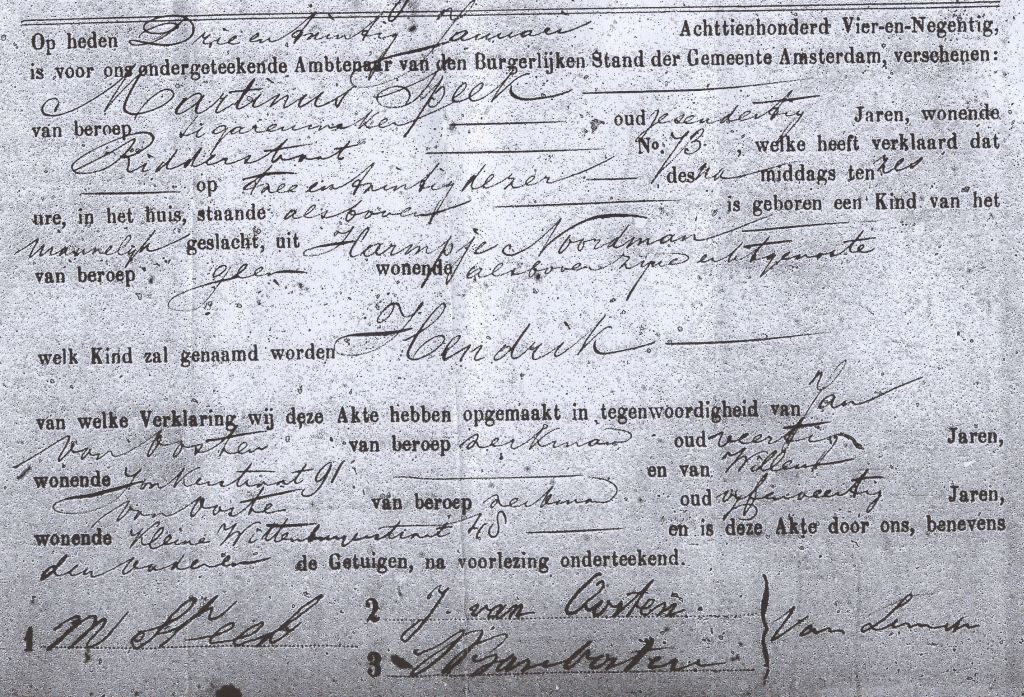 Op heden Drie en twintig Januari Achttienhonderd Vier-en-Negentig,
is voor ons ondergeteekende Ambtenaar van den Burgerlijken Stand der Gemeente Amsterdam, verschenen:
Martinus Speek
van beroep sigarenmaker oud zesendertig Jaren, wonende
Ridderstraat No. 73, welke heeft verklaard dat
op twee en twintig dezer des na middags ten zes
ure, in het huis, staande als boven is geboren een Kind van het
mannelijk geslacht, uit Harmpje Noordman
van beroep geen wonende als boven zijne echtgenoote
welk Kind zal genaamd worden Hendrik
van welke Verklaring wij deze Akte hebben opgemaakt in tegenwoordigheid van Jan
van Oosten van beroep werkman oud veertig Jaren,
wonende Jonkerstraat 91 en van Willem
van Ooste van beroep werkman oud vijfenveertig Jaren,
wonende Kleine Wittenburgerstraat 48 en is deze Akte door ons, benevens
den vader en de Getuigen, na voorlezing onderteekend.
1 M Speek
2 J. van Oosten.
3 W van Oosten
Van Lennep